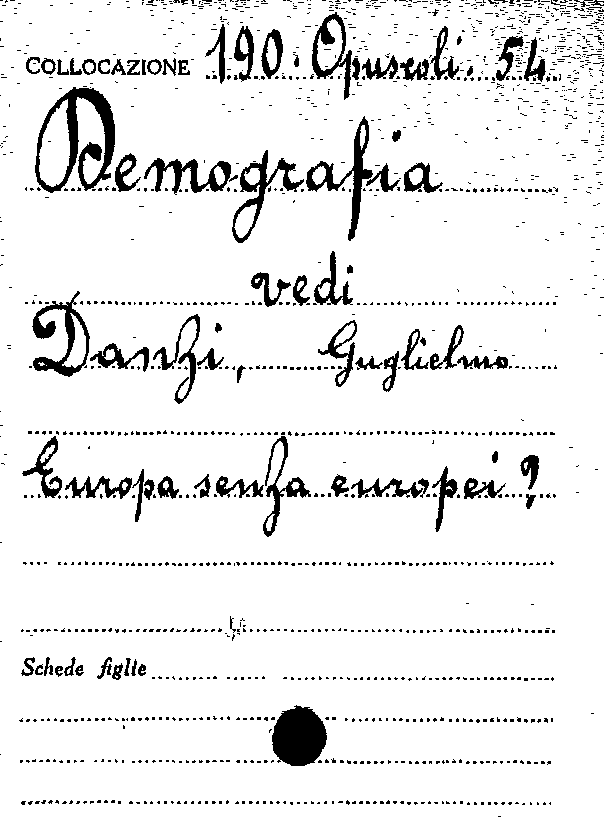 COLLOCAZIONE 190. Opuscoli. 54
Demografia
vedi
Danzi, Guglielmo
Europa senza europei?
Schede figlie